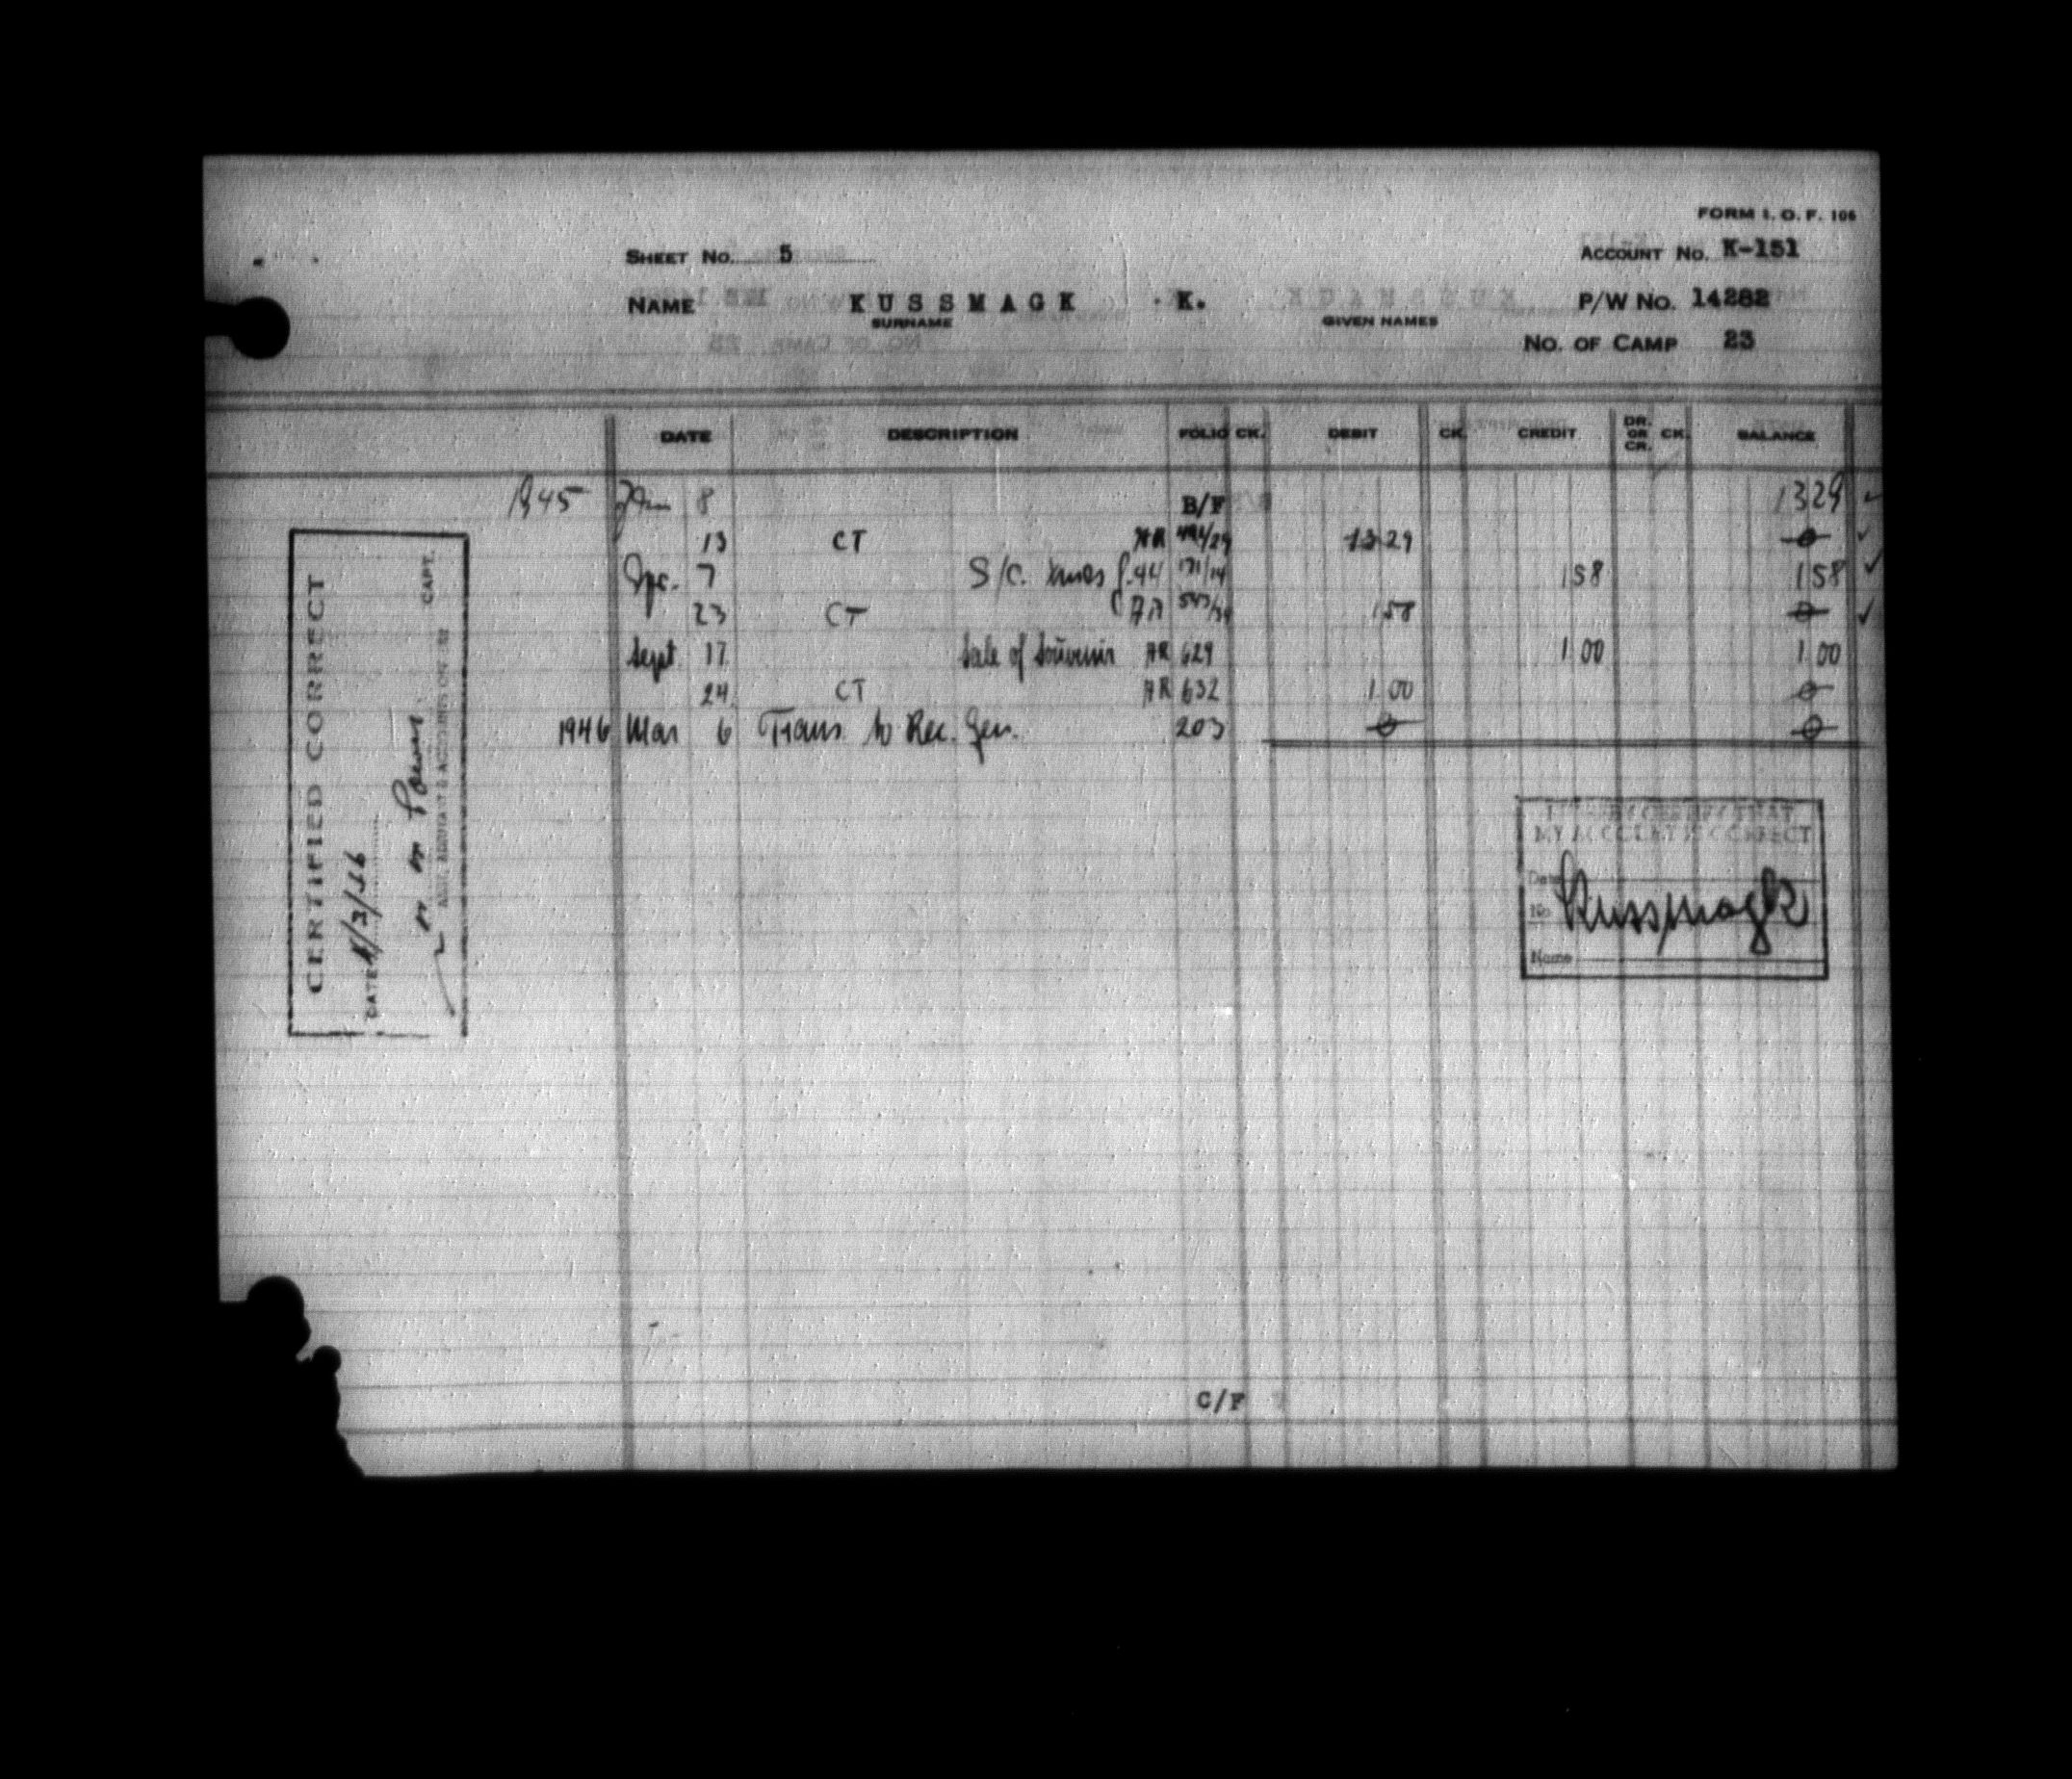 FORM I. O. F. 106
SHEET NO. 5 ACCOUNT NO. K-151
NAME KUSSMAGK K. P/W NO. 14282
SURNAME GIVEN NAMES
NO. OF CAMP 23
DATE DESCRIPTION FOLIO CK. DEBIT CK. CREDIT DR. OR CR. CK. BALANCE
1945 Jan 8 B/F 13 29 ✓
13 CT AR 13 29 0 ✓
7 S/C. Xmas 44 171/14 1 58 1 58 ✓
23 CT AR 1 58 0 ✓
Sept 17 Sale of Souvenir AR 629 1 00 1 00
24 CT AR 632 1 00 0
1946 Mar 6 Trans. to Rec. Gen. 203 0 0
CERTIFIED CORRECT
DATE
CAPT.
I HEREBY CERTIFY THAT
MY ACCOUNT IS CORRECT
Date
No.
Kussmagk
Name
C/F